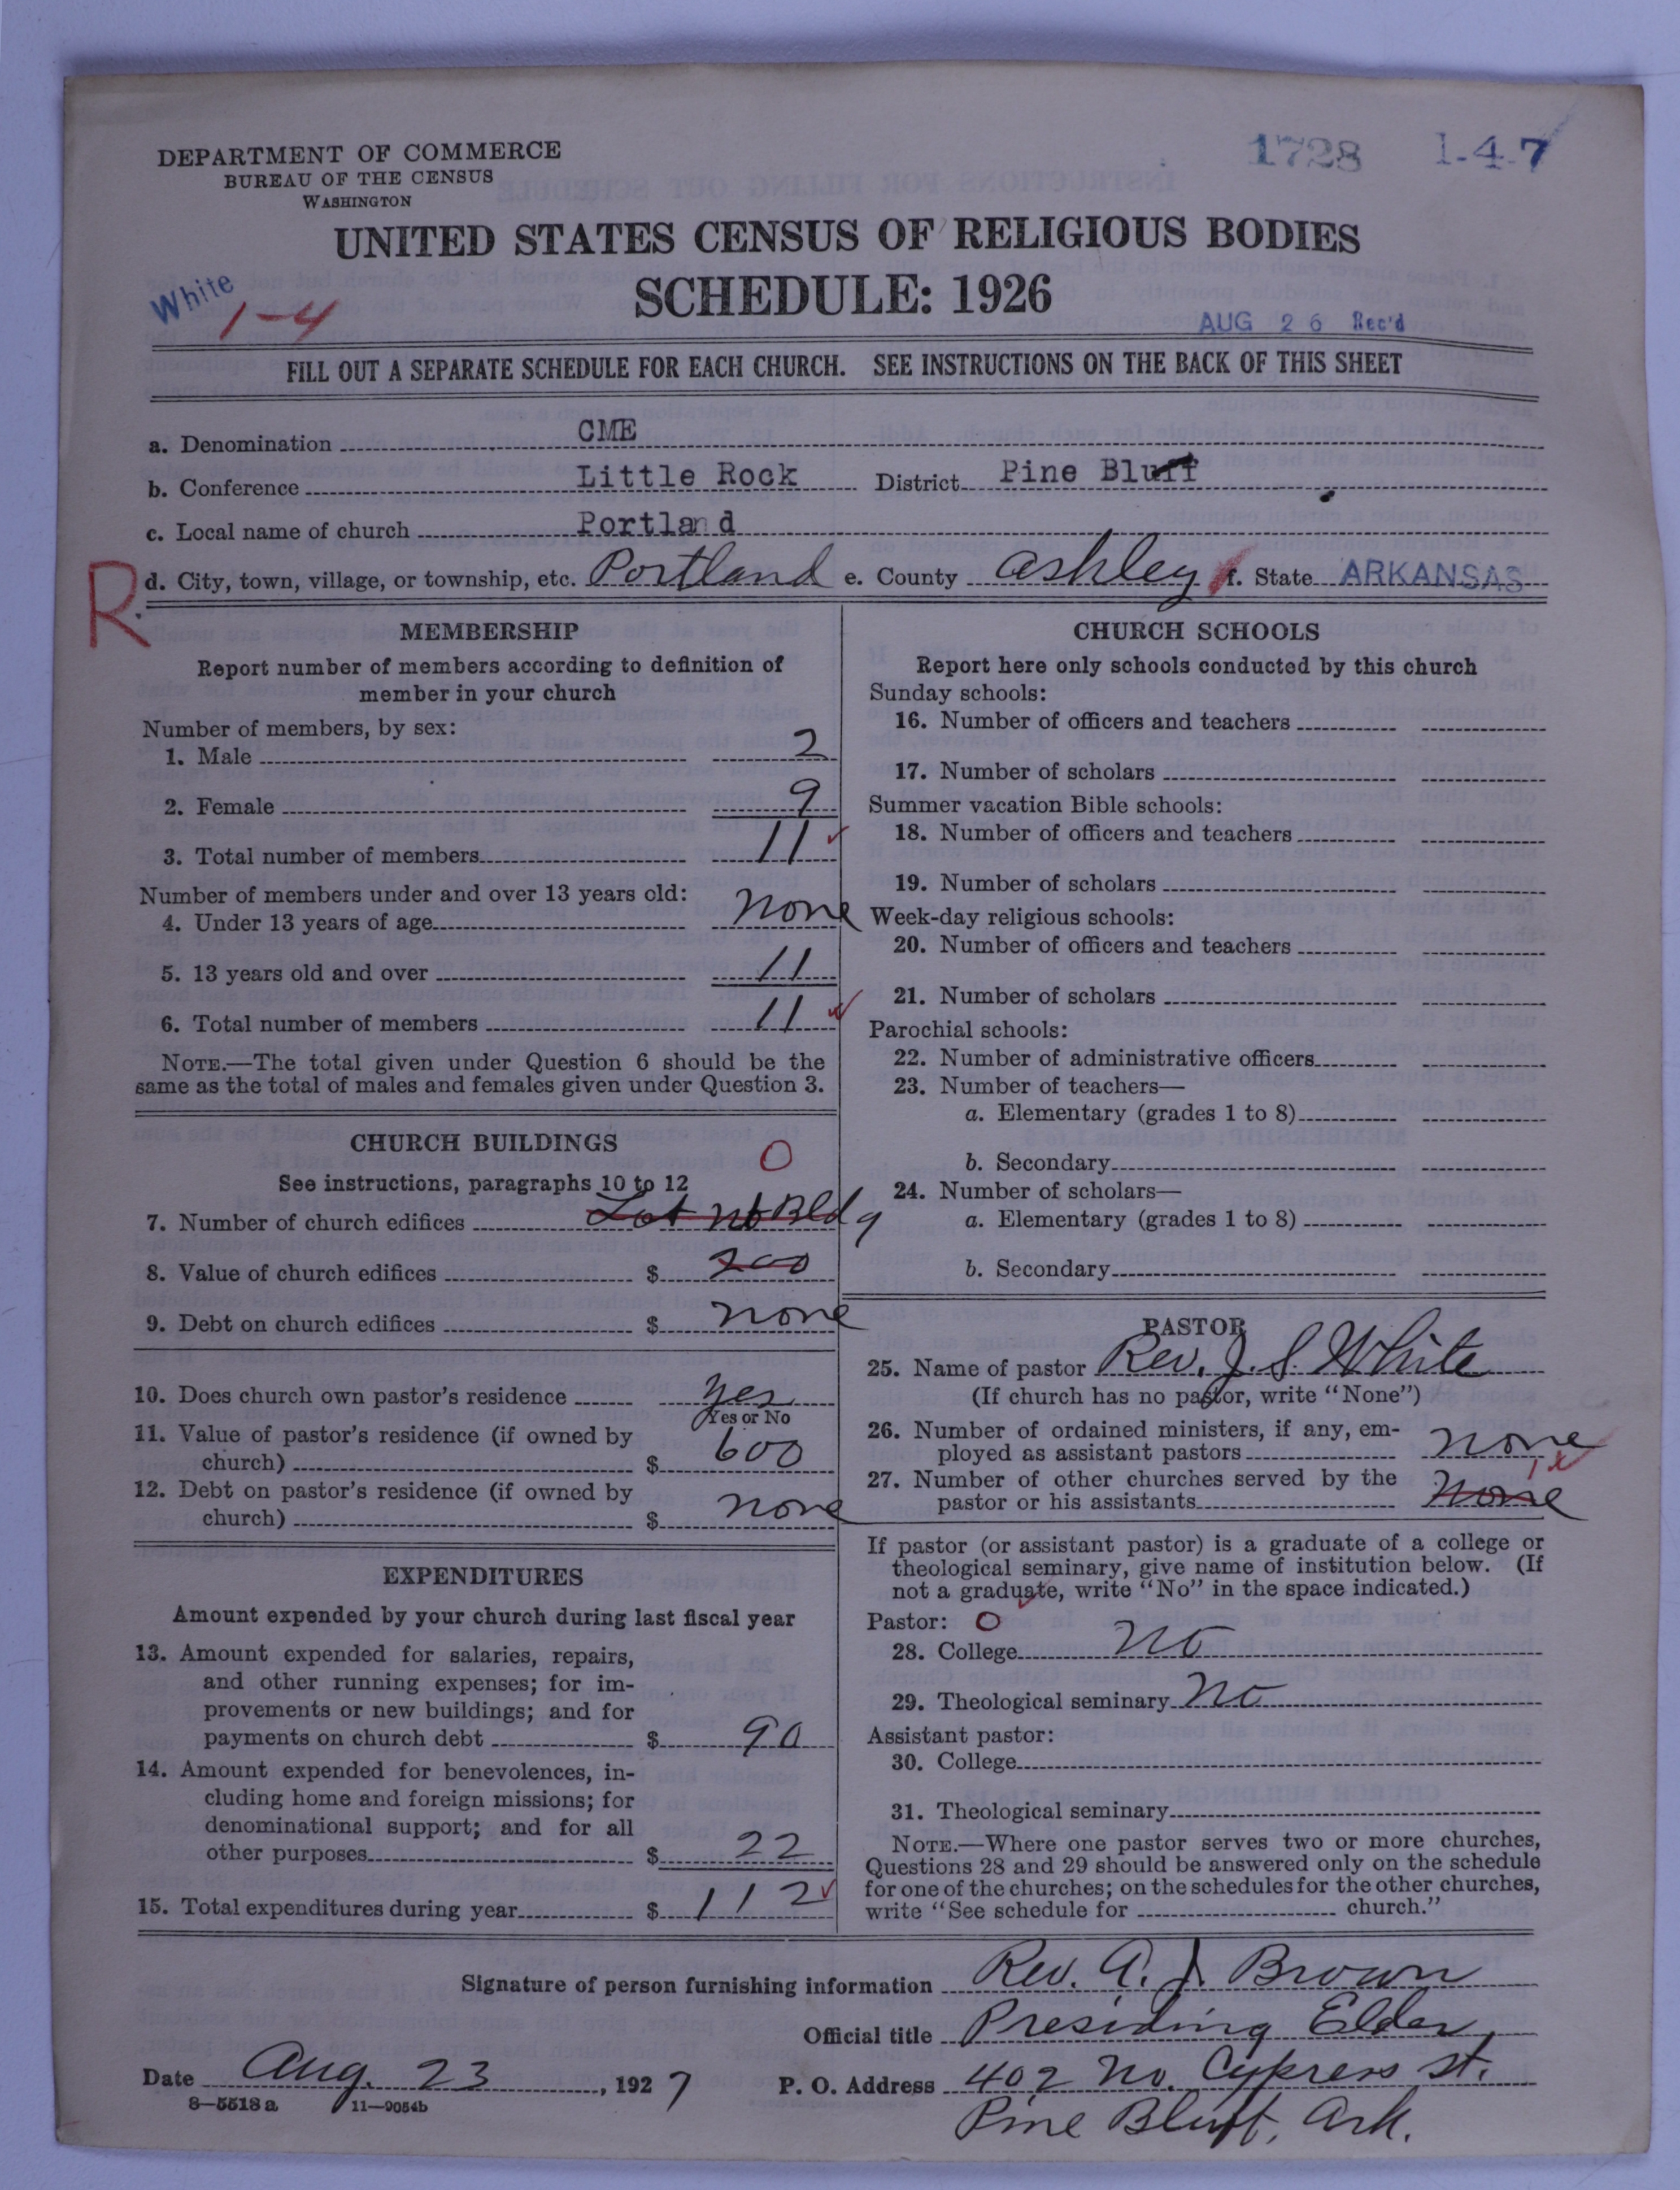 DEPARTMENT OF COMMERCE
BUREAU OF THE CENSUS
WASHINGTON
1728 1-4-7
UNITED STATES CENSUS OF RELIGIOUS BODIES
SCHEDULE: 1926
White
1-4
AUG 26 Rec'd
FILL OUT A SEPARATE SCHEDULE FOR EACH CHURCH. SEE INSTRUCTIONS ON THE BACK OF THIS SHEET
a. Denomination CME
b. Conference Little Rock District Pine Bluff
c. Local name of church Portland
R d. City, town, village, or township, etc. Portland e. County Ashley f. State ARKANSAS
MEMBERSHIP
Report number of members according to definition of
member in your church
Number of members, by sex:
1. Male 2
2. Female 9
3. Total number of members 11
Number of members under and over 13 years old:
4. Under 13 years of age none
5. 13 years old and over 11
6. Total number of members 11
NOTE.—The total given under Question 6 should be the
same as the total of males and females given under Question 3.
CHURCH BUILDINGS
0
See instructions, paragraphs 10 to 12
7. Number of church edifices Lot no Bldg
8. Value of church edifices $ 200
9. Debt on church edifices $ none
10. Does church own pastor's residence yes
Yes or No
11. Value of pastor's residence (if owned by
church) $ 600
12. Debt on pastor's residence (if owned by
church) $ none
EXPENDITURES
Amount expended by your church during last fiscal year
13. Amount expended for salaries, repairs,
and other running expenses; for im-
provements or new buildings; and for
payments on church debt $ 90
14. Amount expended for benevolences, in-
cluding home and foreign missions; for
denominational support; and for all
other purposes $ 22
15. Total expenditures during year $ 112
CHURCH SCHOOLS
Report here only schools conducted by this church
Sunday schools:
16. Number of officers and teachers
17. Number of scholars
Summer vacation Bible schools:
18. Number of officers and teachers
19. Number of scholars
Week-day religious schools:
20. Number of officers and teachers
21. Number of scholars
Parochial schools:
22. Number of administrative officers
23. Number of teachers—
a. Elementary (grades 1 to 8)
b. Secondary
24. Number of scholars—
a. Elementary (grades 1 to 8)
b. Secondary
PASTOR
25. Name of pastor Rev. J. S. White
(If church has no pastor, write "None")
26. Number of ordained ministers, if any, em-
ployed as assistant pastors none
27. Number of other churches served by the 1
pastor or his assistants none
If pastor (or assistant pastor) is a graduate of a college or
theological seminary, give name of institution below. (If
not a graduate, write "No" in the space indicated.)
Pastor: 0
28. College No
29. Theological seminary No
Assistant pastor:
30. College
31. Theological seminary
NOTE.—Where one pastor serves two or more churches,
Questions 28 and 29 should be answered only on the schedule
for one of the churches; on the schedules for the other churches,
write "See schedule for church."
Signature of person furnishing information Rev. A. J. Brown
Official title Presiding Elder
Date Aug. 23, 1927 P. O. Address 402 No. Cypress St.
8—5518 a 11—9054b
Pine Bluff, Ark.